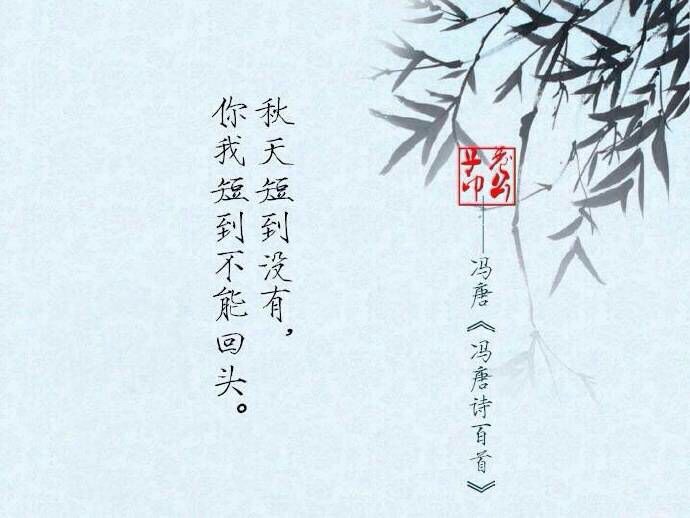 秋天短到没有，
你我短到不能回头。
——冯唐《冯唐诗百首》